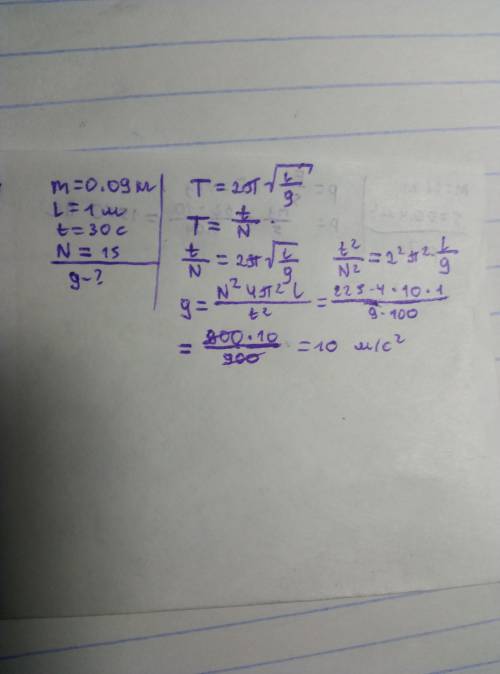 m=0.09м
L=1м
t=30с
N=15
g-?
T=2π√(L/g)
T=t/N
t/N=2π√(L/g) t²/N²=2²π²·L/g
g=N²4π²L/t²=225·4·10·1/9·100
=900·10/900=10 м/с²